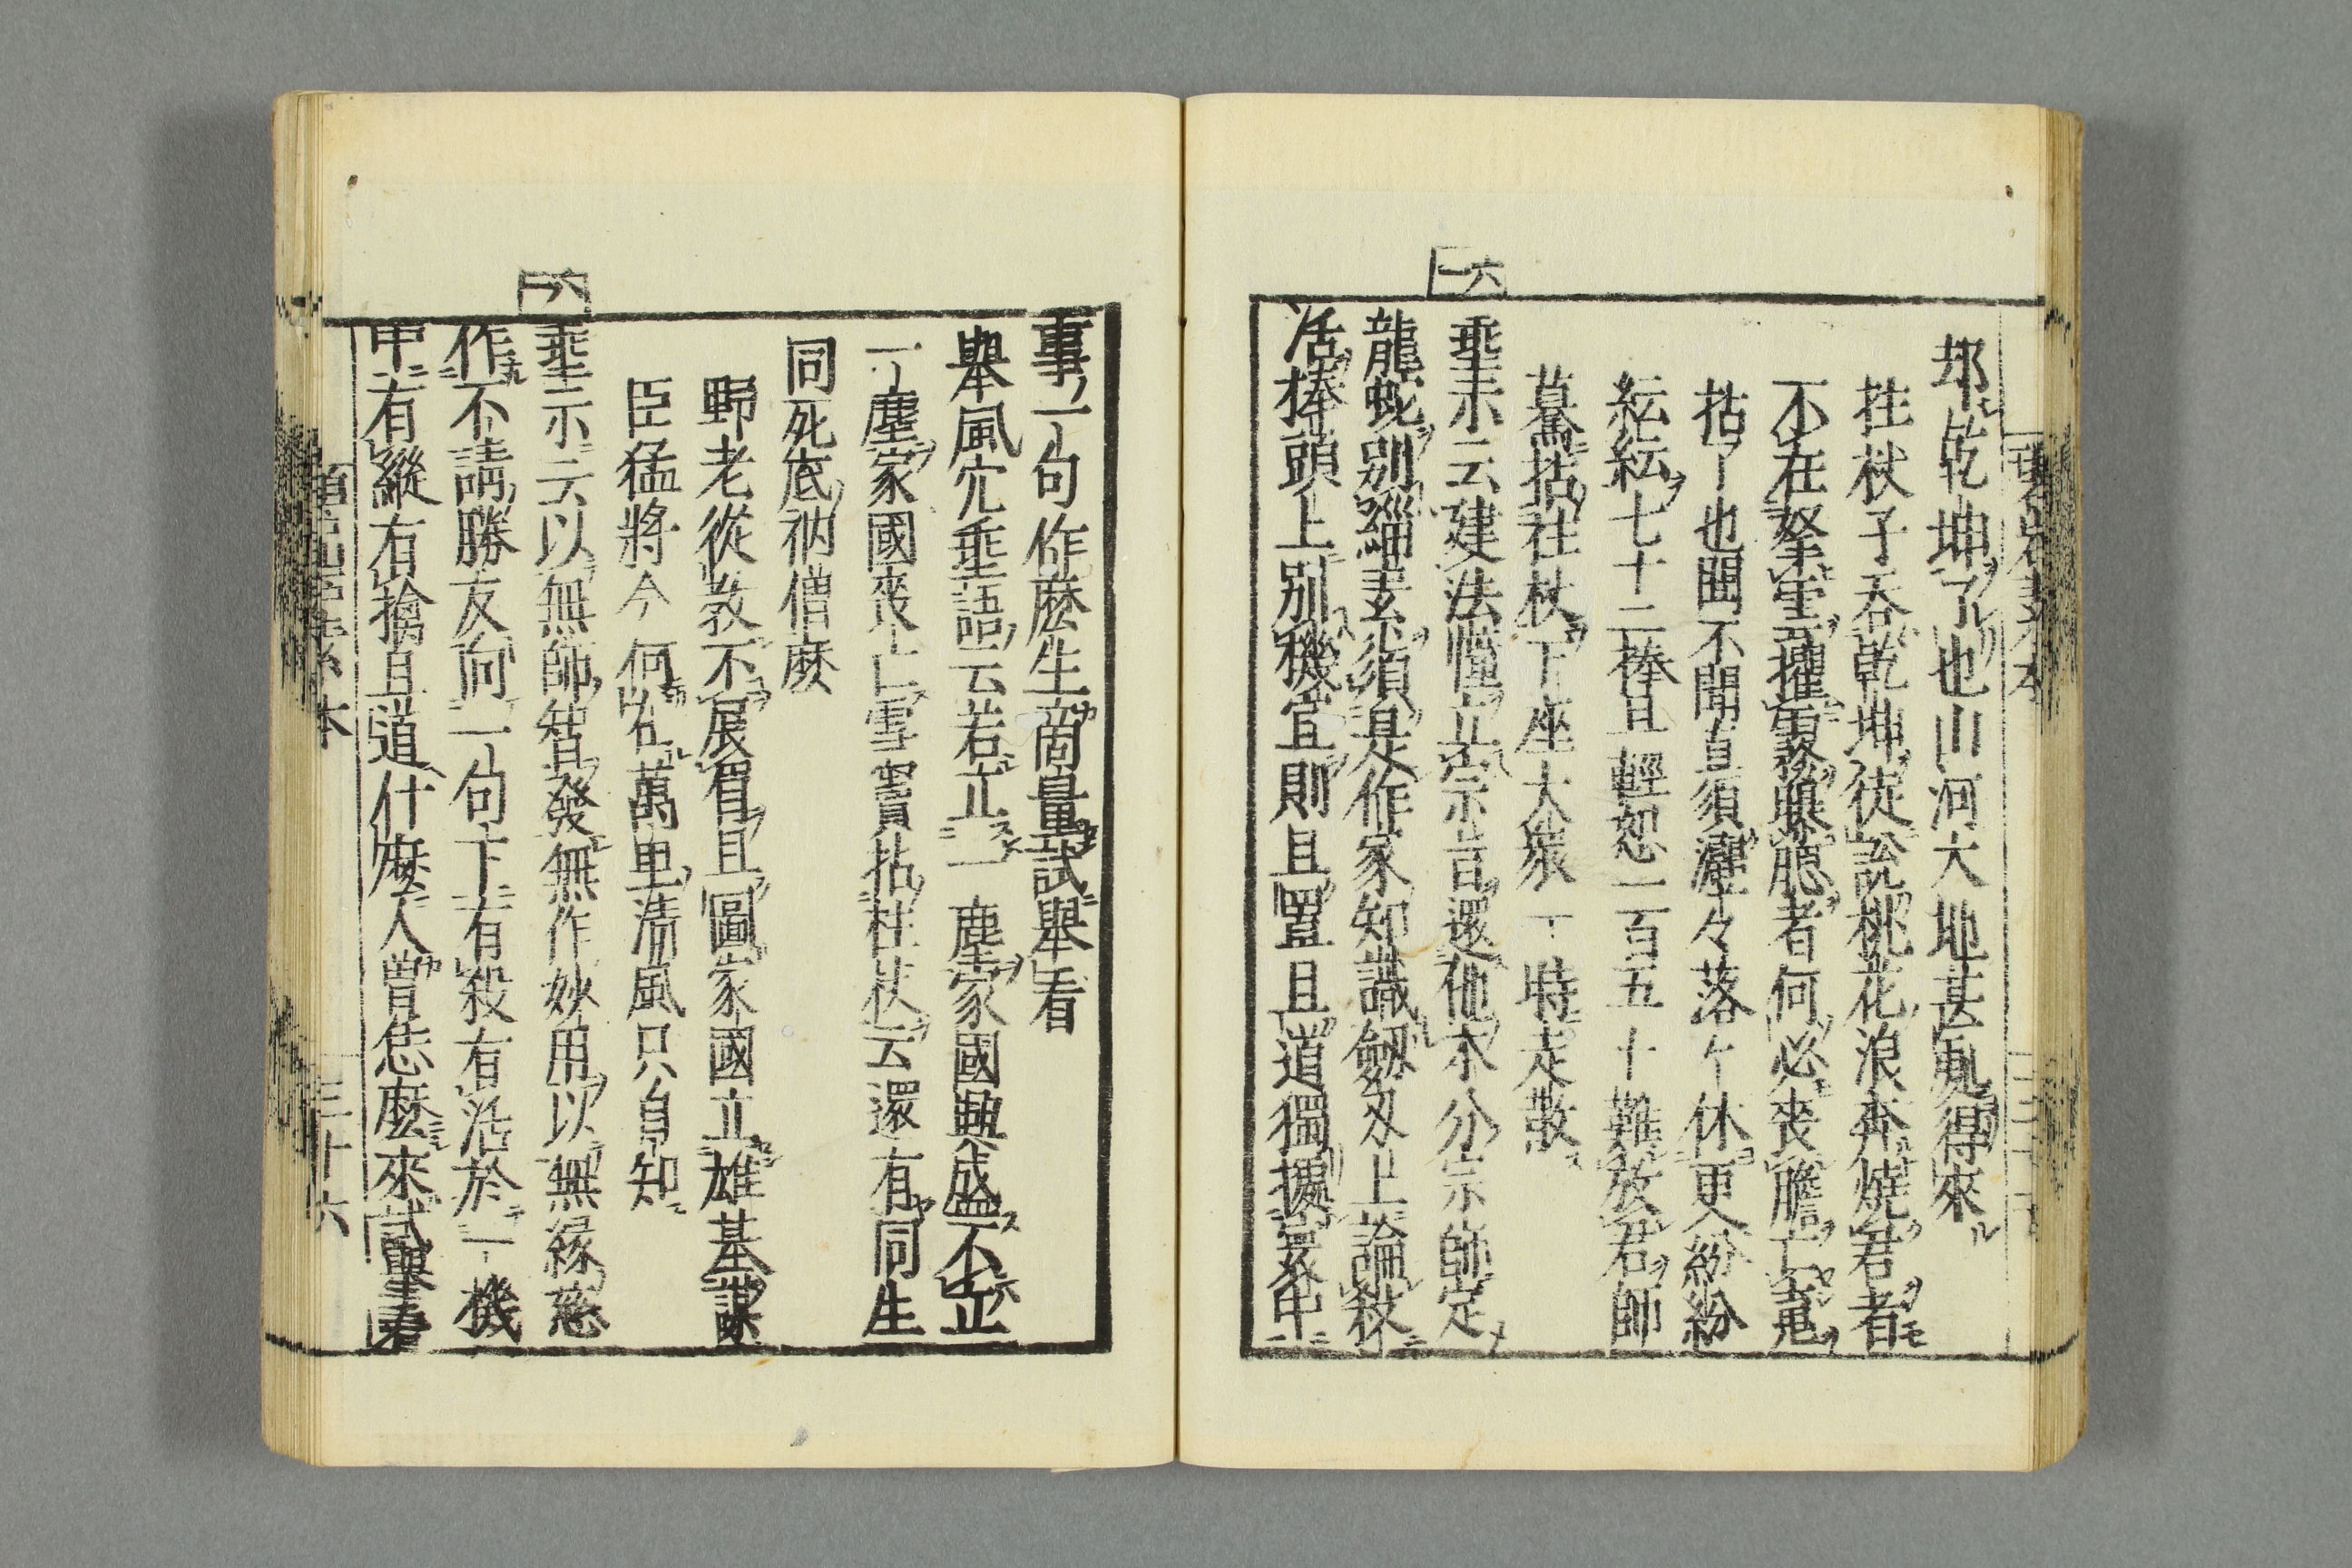 却乾坤了也山河大地甚處得來
拄杖子吞乾坤徒說桃花浪奔燒尾者
不在拏雲攫霧曝腮者何必喪膽亡魂
拈了也聞不聞直須灑々落々休更紛紛
紜紜七十二棒且輕恕一百五十難放君師
驀拈拄杖下座大衆一時走散
六一
垂示云建法幢立宗旨還他本分宗師定
龍蛇別緇素須是作家知識劔刄上論殺
活棒頭上別機宜則且置且道獨據寰中
事一句作麽生商量試舉看
舉風穴垂語云若立一塵家國興盛不立
一塵家國喪亡雪竇拈柱杖云還有同生
同死底衲僧麽
野老從教不展眉且圖家國立雄基謀
臣猛將今何在萬里清風只自知
六二
垂示云以無師智發無作妙用以無緣慈
作不請勝友向一句下有殺有活於一機
中有縱有擒且道什麽人曾恁麽來試舉看
三十六